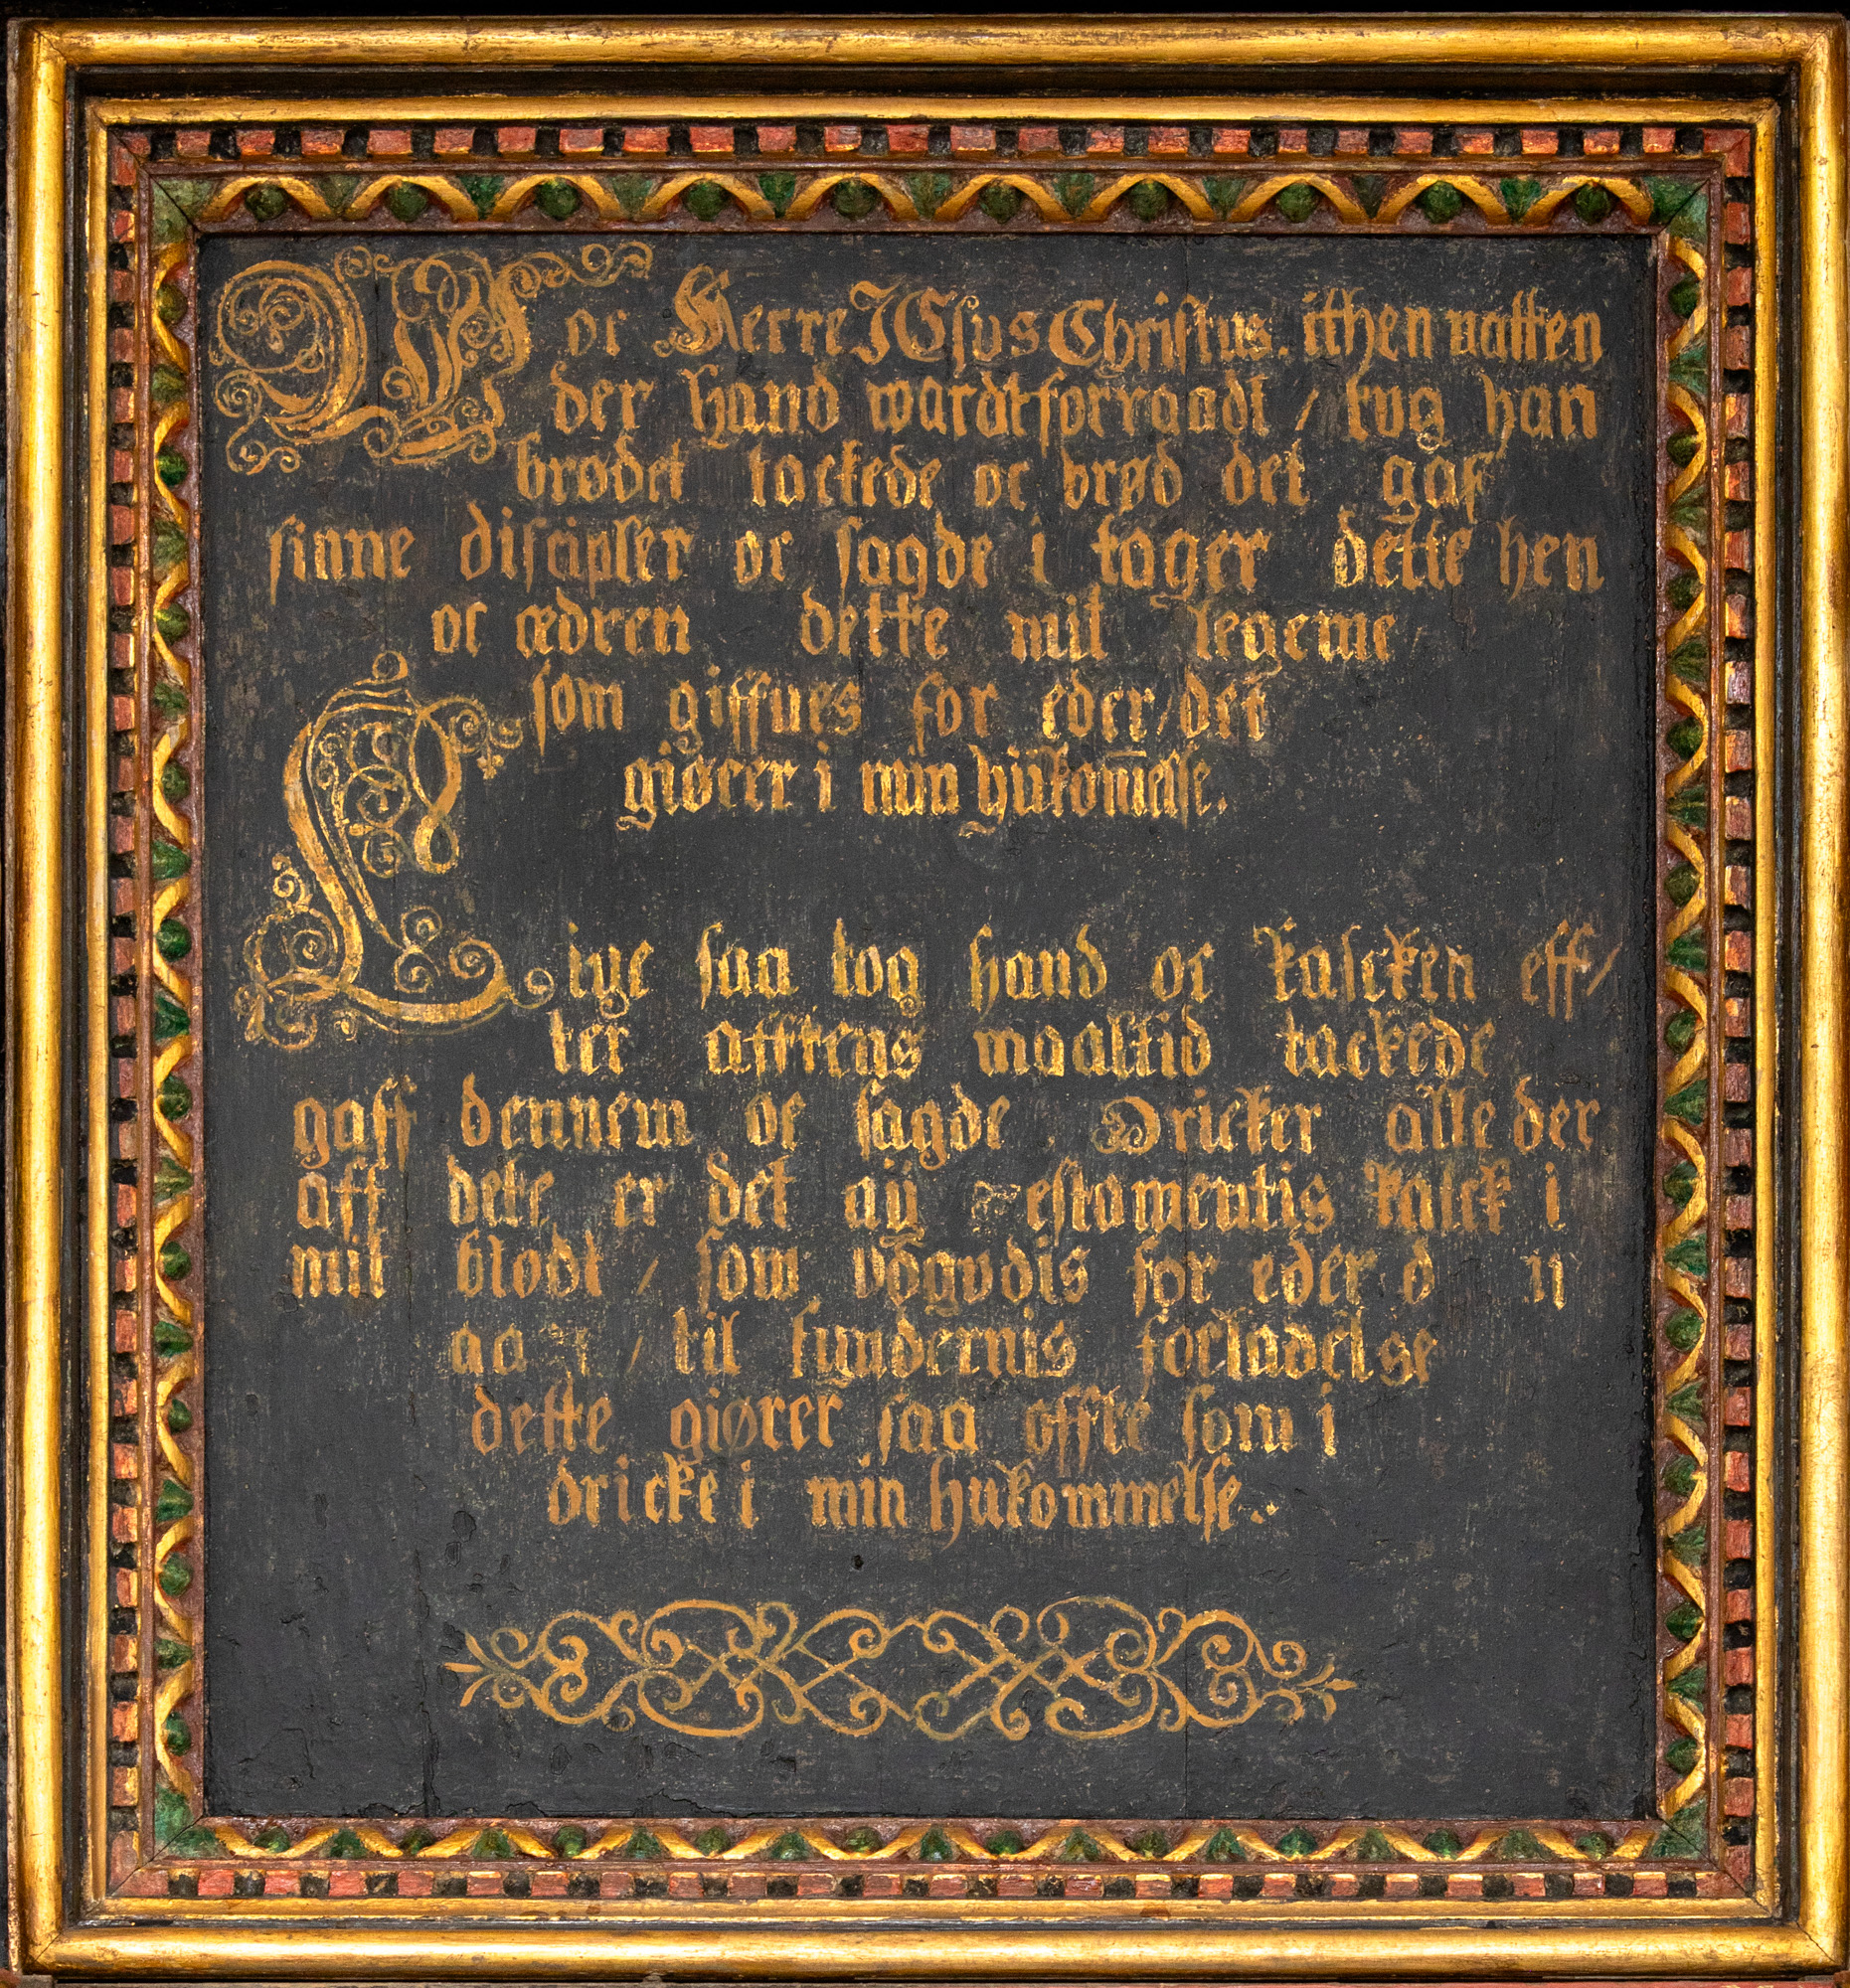 Wor Herre JESus Christus. ithen natten
der hand wardt forraadt / tog han
brødet tackede oc brød det gaf
sinne discipler oc sagde i tager dette hen
oc ædren dette mit legeme
som giffues for eder / det
giører i min hukom̅else.
Lige saa tog hand oc kalcken eff/
ter afftens maaltid tackede
gaff dennem oc sagde. Dricker alle der
aff dete er det ny estamentis kalck i
mit blodt / som for eder
aa / til syndernis forladelse
dette giører saa offte som i
dricke i min hukommelse.